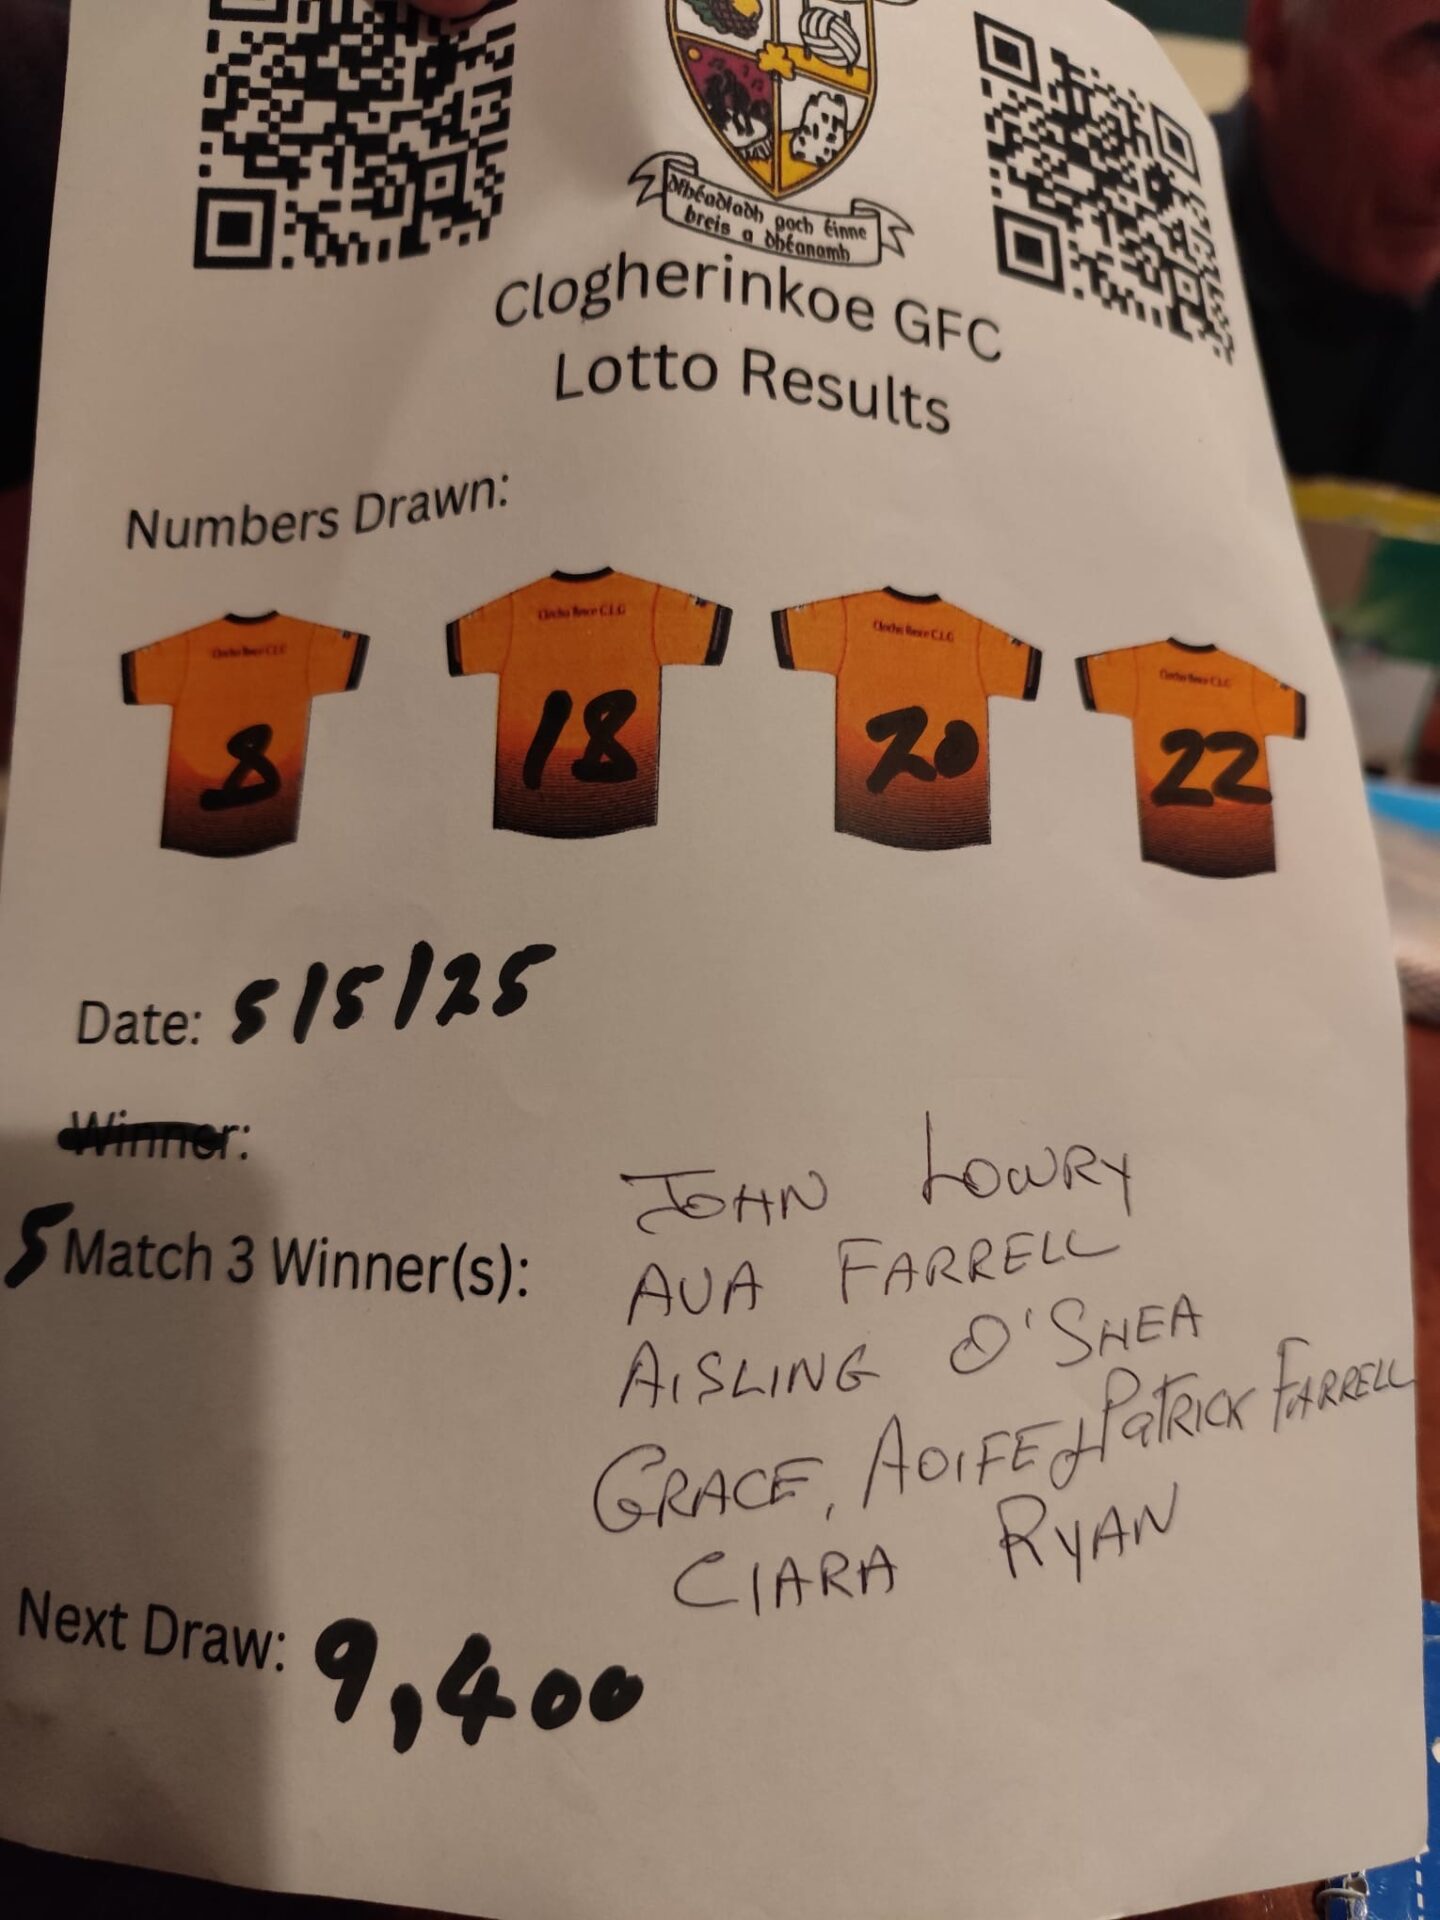 Dfhéadfadh gach éinne
breis a dhéanamh
Clogherinkoe GFC
Lotto Results
Numbers Drawn:
8 18 20 22
Date: 5/5/25
Winner:
5 Match 3 Winner(s):
JOHN LOWRY
AVA FARRELL
AISLING O'SHEA
GRACE, AOIFE & PATRICK FARRELL
CIARA RYAN
Next Draw: 9,400